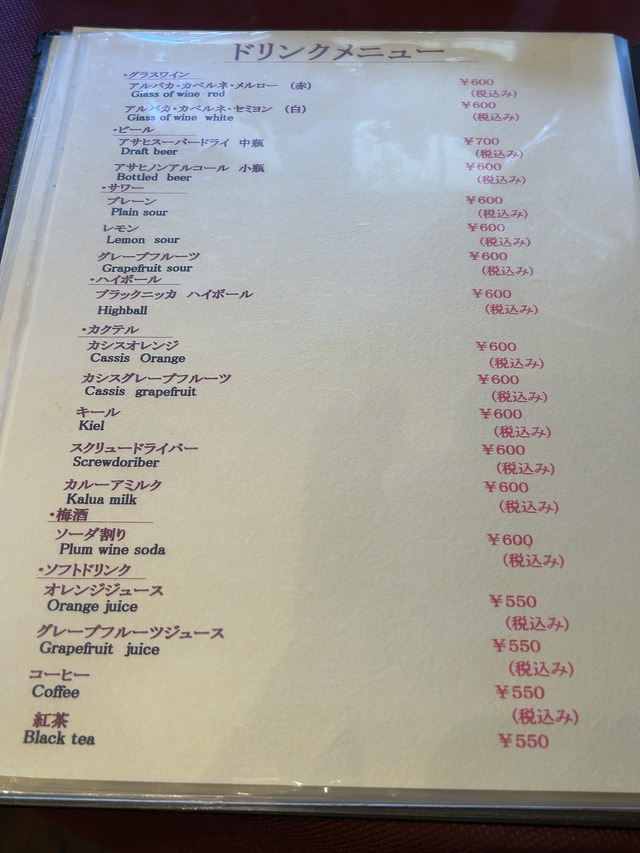 ドリンクメニュー
・グラスワイン
アルパカ・カベルネ・メルロー （赤） ￥600
Glass of wine red （税込み）
アルパカ・カベルネ・セミヨン （白） ￥600
Glass of wine white （税込み）
・ビール
アサヒスーパードライ 中瓶 ￥700
Draft beer （税込み）
アサヒノンアルコール 小瓶 ￥600
Bottled beer （税込み）
・サワー
プレーン ￥600
Plain sour （税込み）
レモン ￥600
Lemon sour （税込み）
グレープフルーツ ￥600
Grapefruit sour （税込み）
・ハイボール
ブラックニッカ ハイボール ￥600
Highball （税込み）
・カクテル
カシスオレンジ ￥600
Cassis Orange （税込み）
カシスグレープフルーツ ￥600
Cassis grapefruit （税込み）
キール ￥600
Kiel （税込み）
スクリュードライバー ￥600
Screwdoriber （税込み）
カルーアミルク ￥600
Kalua milk （税込み）
・梅酒
ソーダ割り ￥600
Plum wine soda （税込み）
・ソフトドリンク
オレンジジュース ￥550
Orange juice （税込み）
グレープフルーツジュース ￥550
Grapefruit juice （税込み）
コーヒー ￥550
Coffee （税込み）
紅茶 ￥550
Black tea